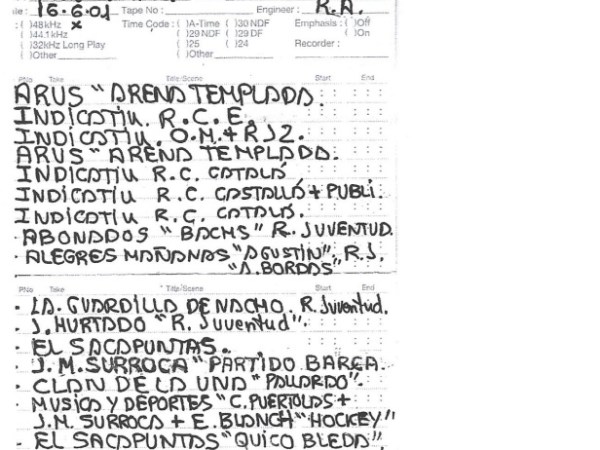 le: 16-6-01 Tape No: Engineer: R.A.
: ( )48kHz x Time Code: ( )A-Time ( )30 NDF Emphasis: ( )Off
( )44.1kHz ( )29 NDF ( )29 DF ( )On
( )32kHz Long Play ( )25 ( )24 Recorder:
( )Other ( )Other
PNo Take Title/Scene Start End
ARUS "ARENA TEMPLADA.
INDICATIU. R.C.E.
INDICATIU. O.M.+RJ2.
ARUS "ARENA TEMPLADA.
INDICATIU R.C. CATALÁ
INDICATIU R.C. CASTALLÁ + PUBLI.
INDICATIU R.C. CATALÁ.
· ABONADOS "BACHS" R. JUVENTUD.
· ALEGRES MAÑANAS "AGUSTIN", R.J.
"A. BORDAS"
PNo Take Title/Scene Start End
· LA. GUARDILLA DE NACHO. R. Juventud.
· J. HURTADO "R. Juventud".
· EL SACAPUNTAS.
· J.M. SURROCA "PARTIDO BARÇA.
· CLAN DE LA UNA "PALLARDO".
· MUSICA Y DEPORTES "C. PUERTOLAS +
J.M. SURROCA + E. BLANCH "HOCKEY"
- EL SACAPUNTAS "QUICO BLEDA".